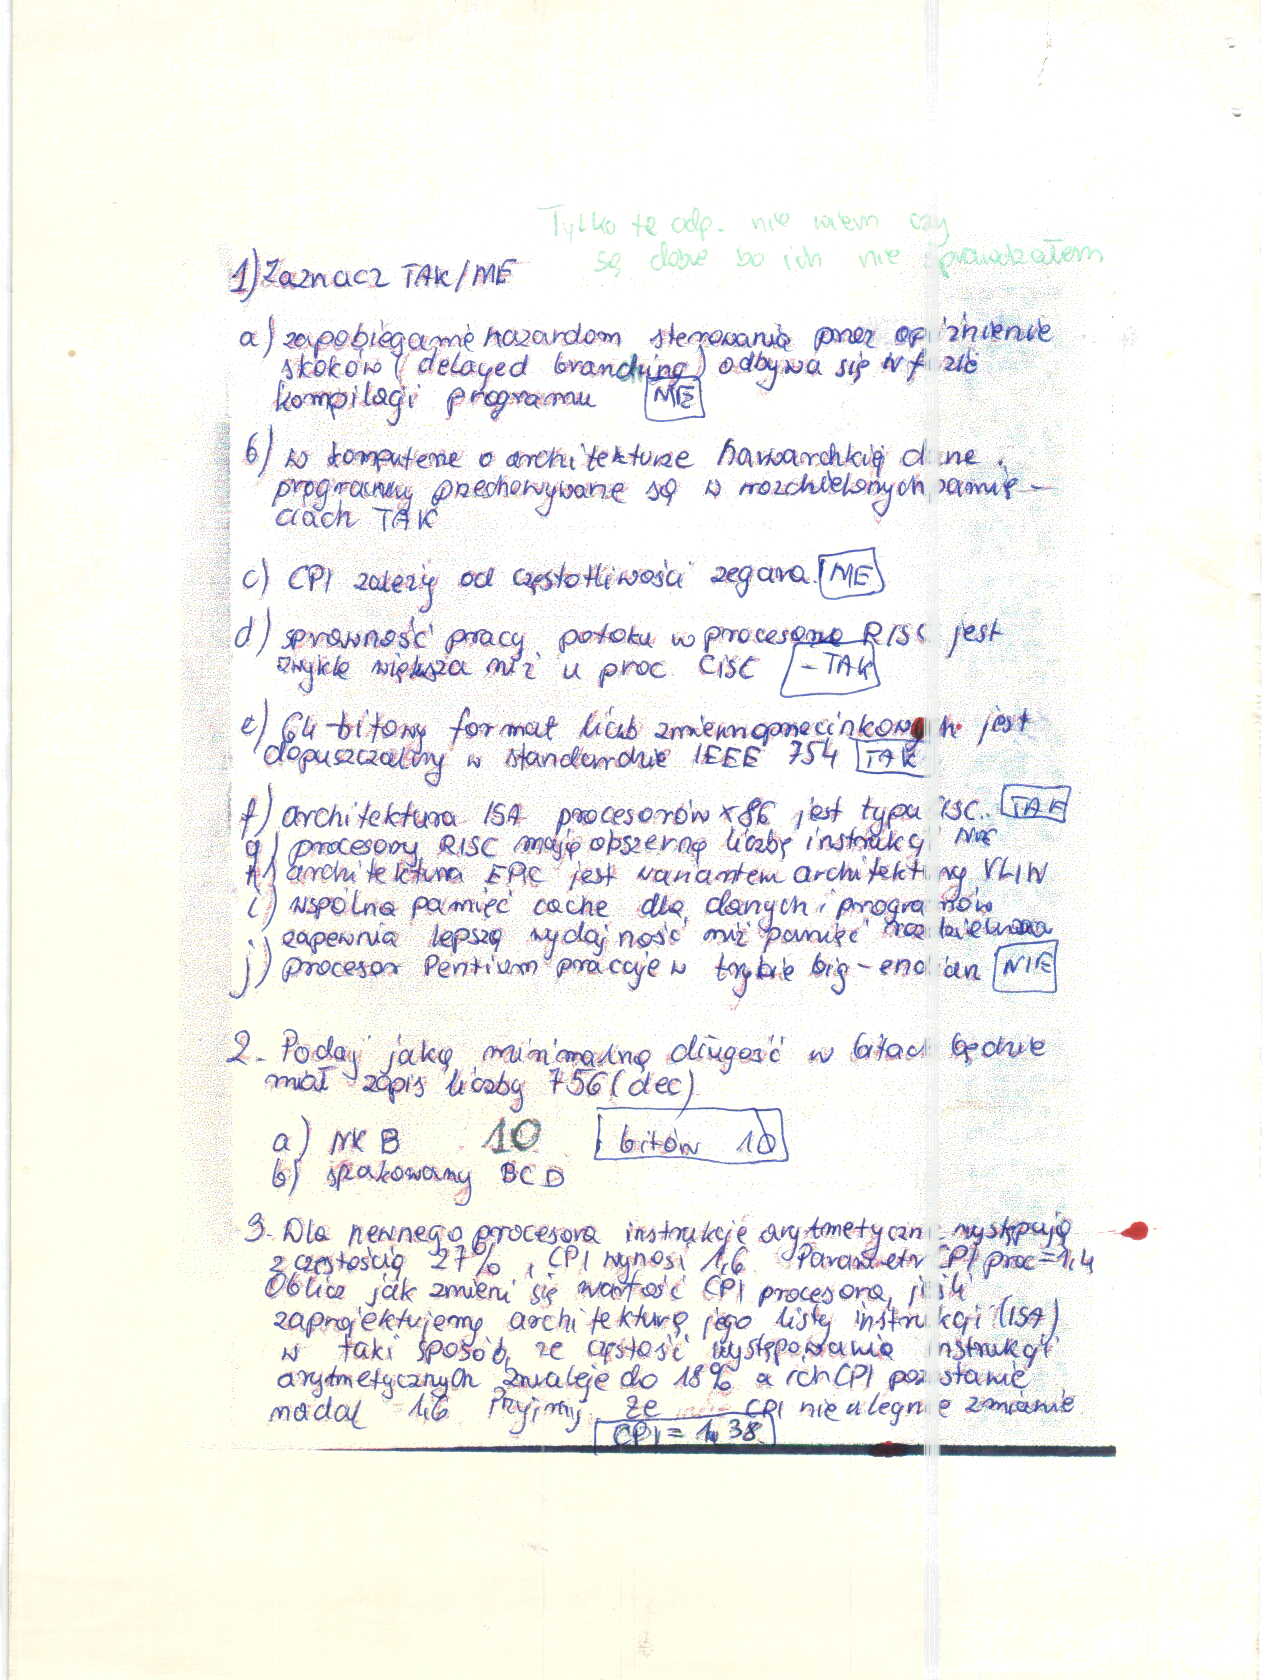 Tylko te odp. nie wiem czy
są dobre bo ich nie sprawdzałem
1) Zaznacz TAK/NIE
a) zapobieganie hazardom sterowania przez opóźnienie
skoków (delayed branching) odbywa się w fazie
kompilacji programu NIE
b) w komputerze o architekturze harwardzkiej dane i
programy przechowywane są w rozdzielonych pamię-
ciach TAK
c) CPI zależy od częstotliwości zegara. NIE
d) sprawność pracy potoku w procesorze RISC jest
zwykle większa niż u proc. CISC - TAK
e) 64-bitowy format liczb zmiennoprzecinkowych jest
dopuszczalny w standardzie IEEE 754 TAK
f) architektura ISA procesorów x86 jest typu CISC. TAK
g) procesory RISC mają obszerną liczbę instrukcji NIE
h) architektura EPIC jest wariantem architektury VLIW
i) wspólna pamięć cache dla danych i programów
zapewnia lepszą wydajność niż pamięć rozdzielona
j) procesor Pentium pracuje w trybie big-endian NIE
2. Podaj jaką minimalną długość w bitach będzie
miał zapis liczby 756 (dec)
a) NKB 10 bitów 10
b) spakowany BCD
3. Dla pewnego procesora instrukcje arytmetyczne występują
z częstością 27%, CPI wynosi 1,6 Parametr CPI proc=1,4
Oblicz jak zmieni się wartość CPI procesora, jeśli
zaprojektujemy architekturę jego listy instrukcji (ISA)
w taki sposób, że częstość występowania instrukcji
arytmetycznych zmaleje do 18% a ich CPI pozostanie
nadal 1,6 Przyjmij że CPI nie ulegnie zmianie
CPI = 1,38